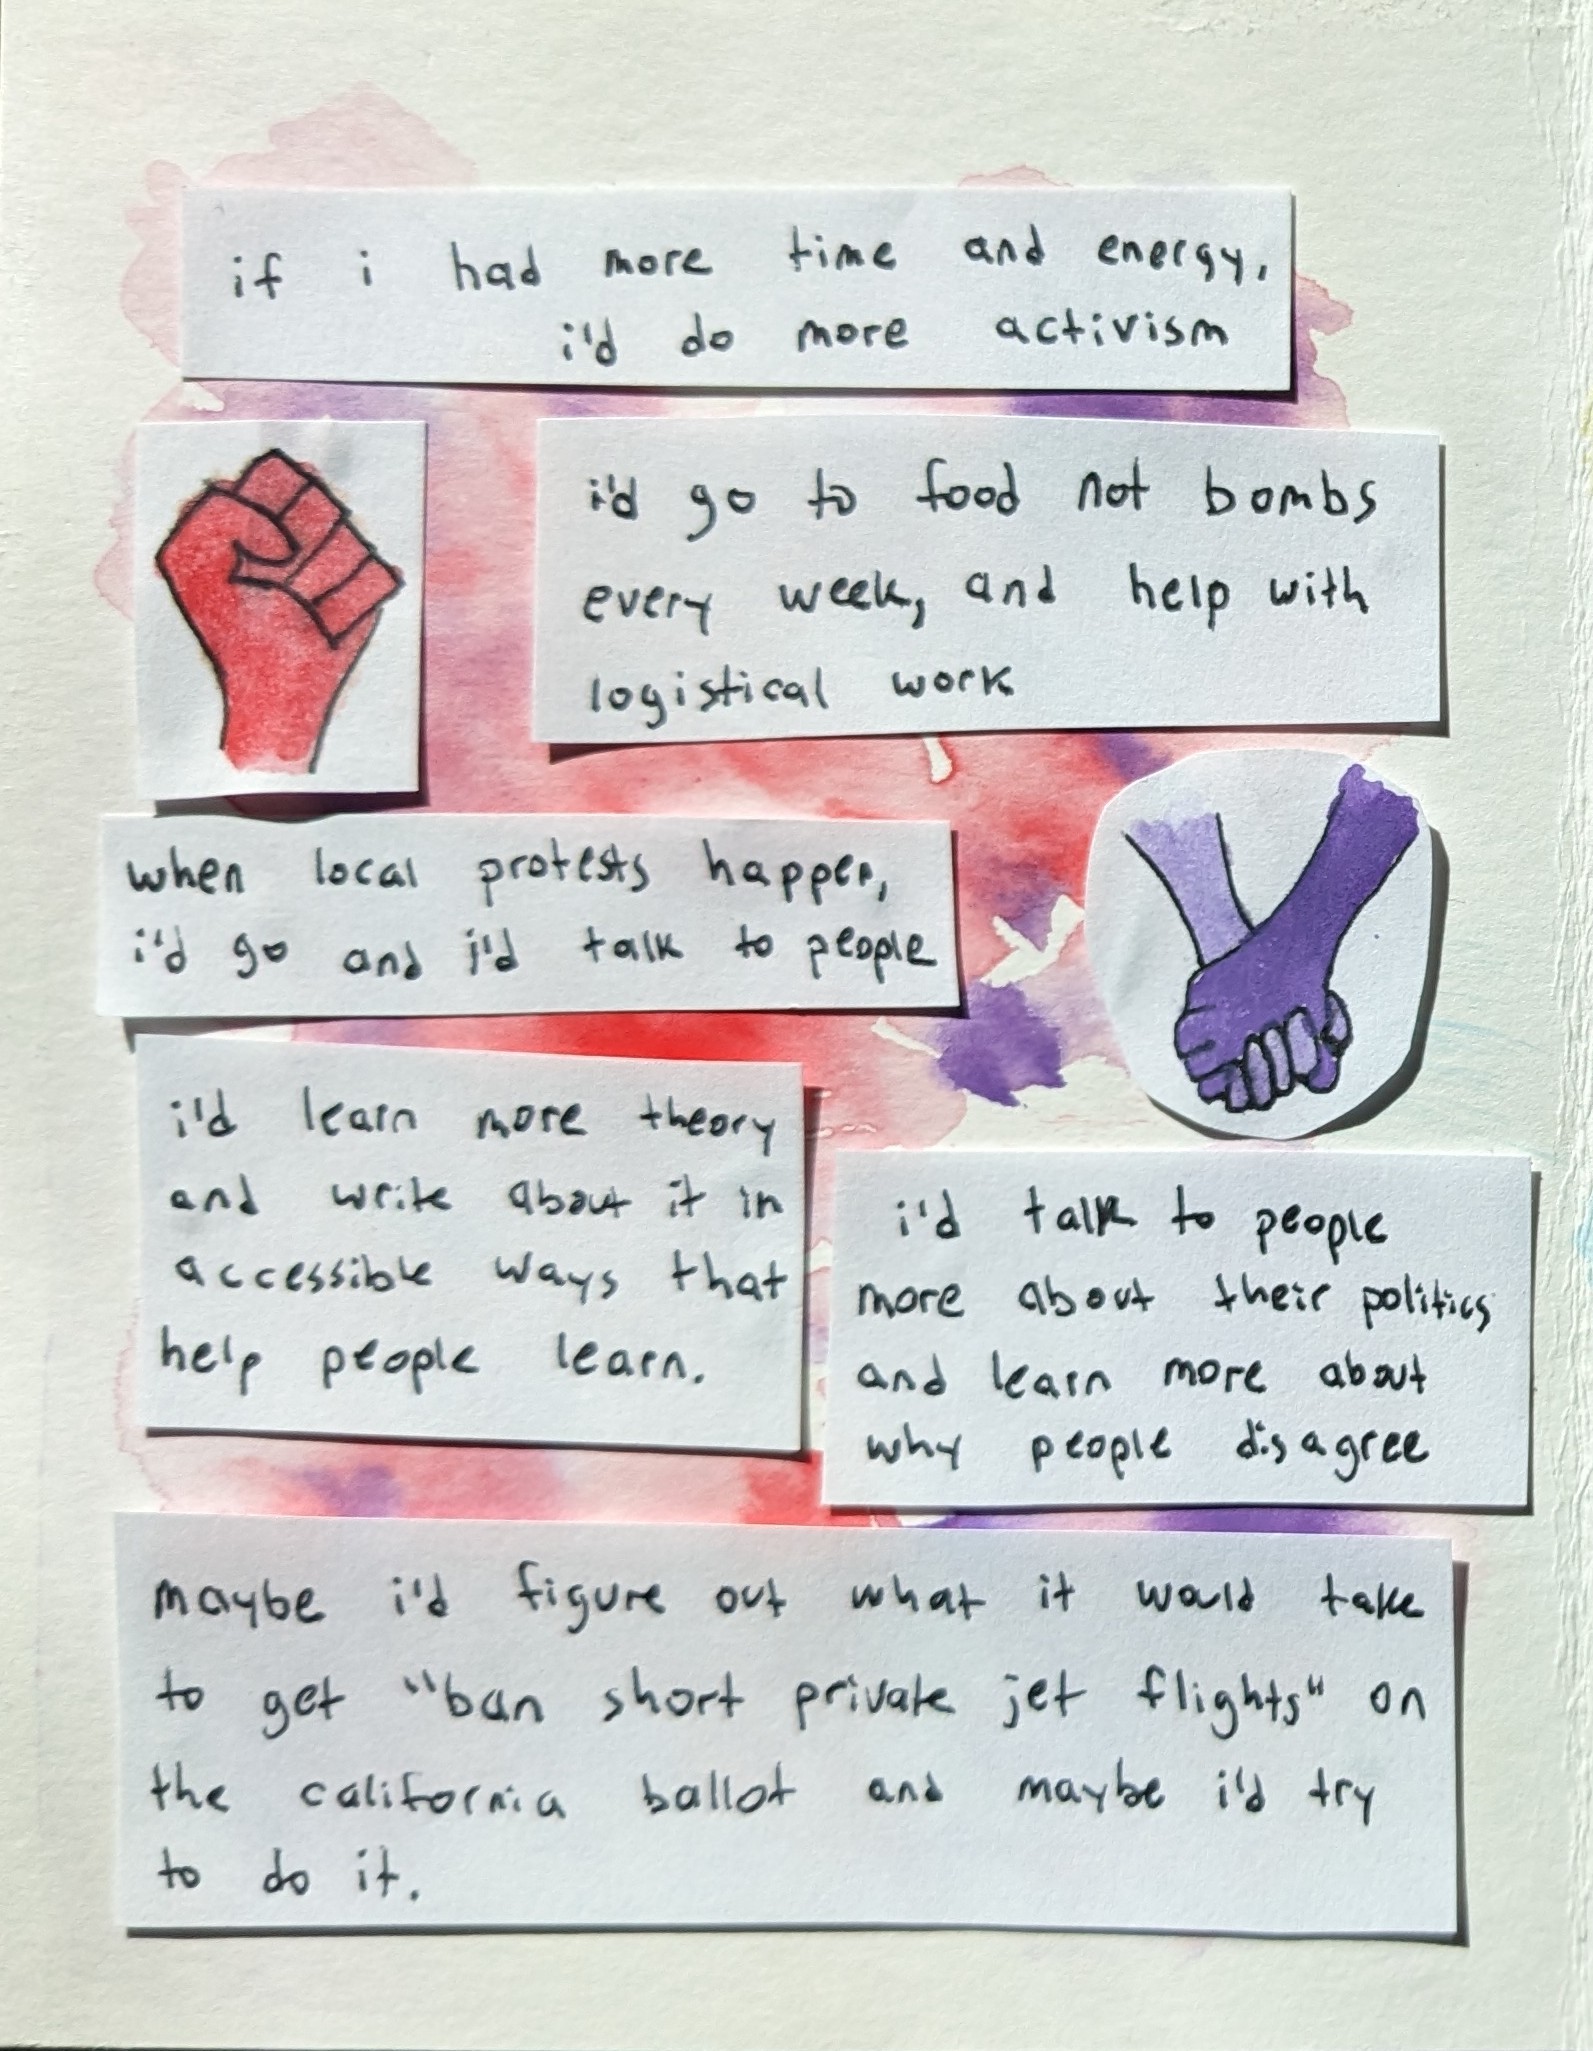 if i had more time and energy,
i'd do more activism
i'd go to food not bombs
every week, and help with
logistical work
when local protests happen,
i'd go and i'd talk to people
i'd learn more theory
and write about it in
accessible ways that
help people learn.
i'd talk to people
more about their politics
and learn more about
why people disagree
maybe i'd figure out what it would take
to get "ban short private jet flights" on
the california ballot and maybe i'd try
to do it.